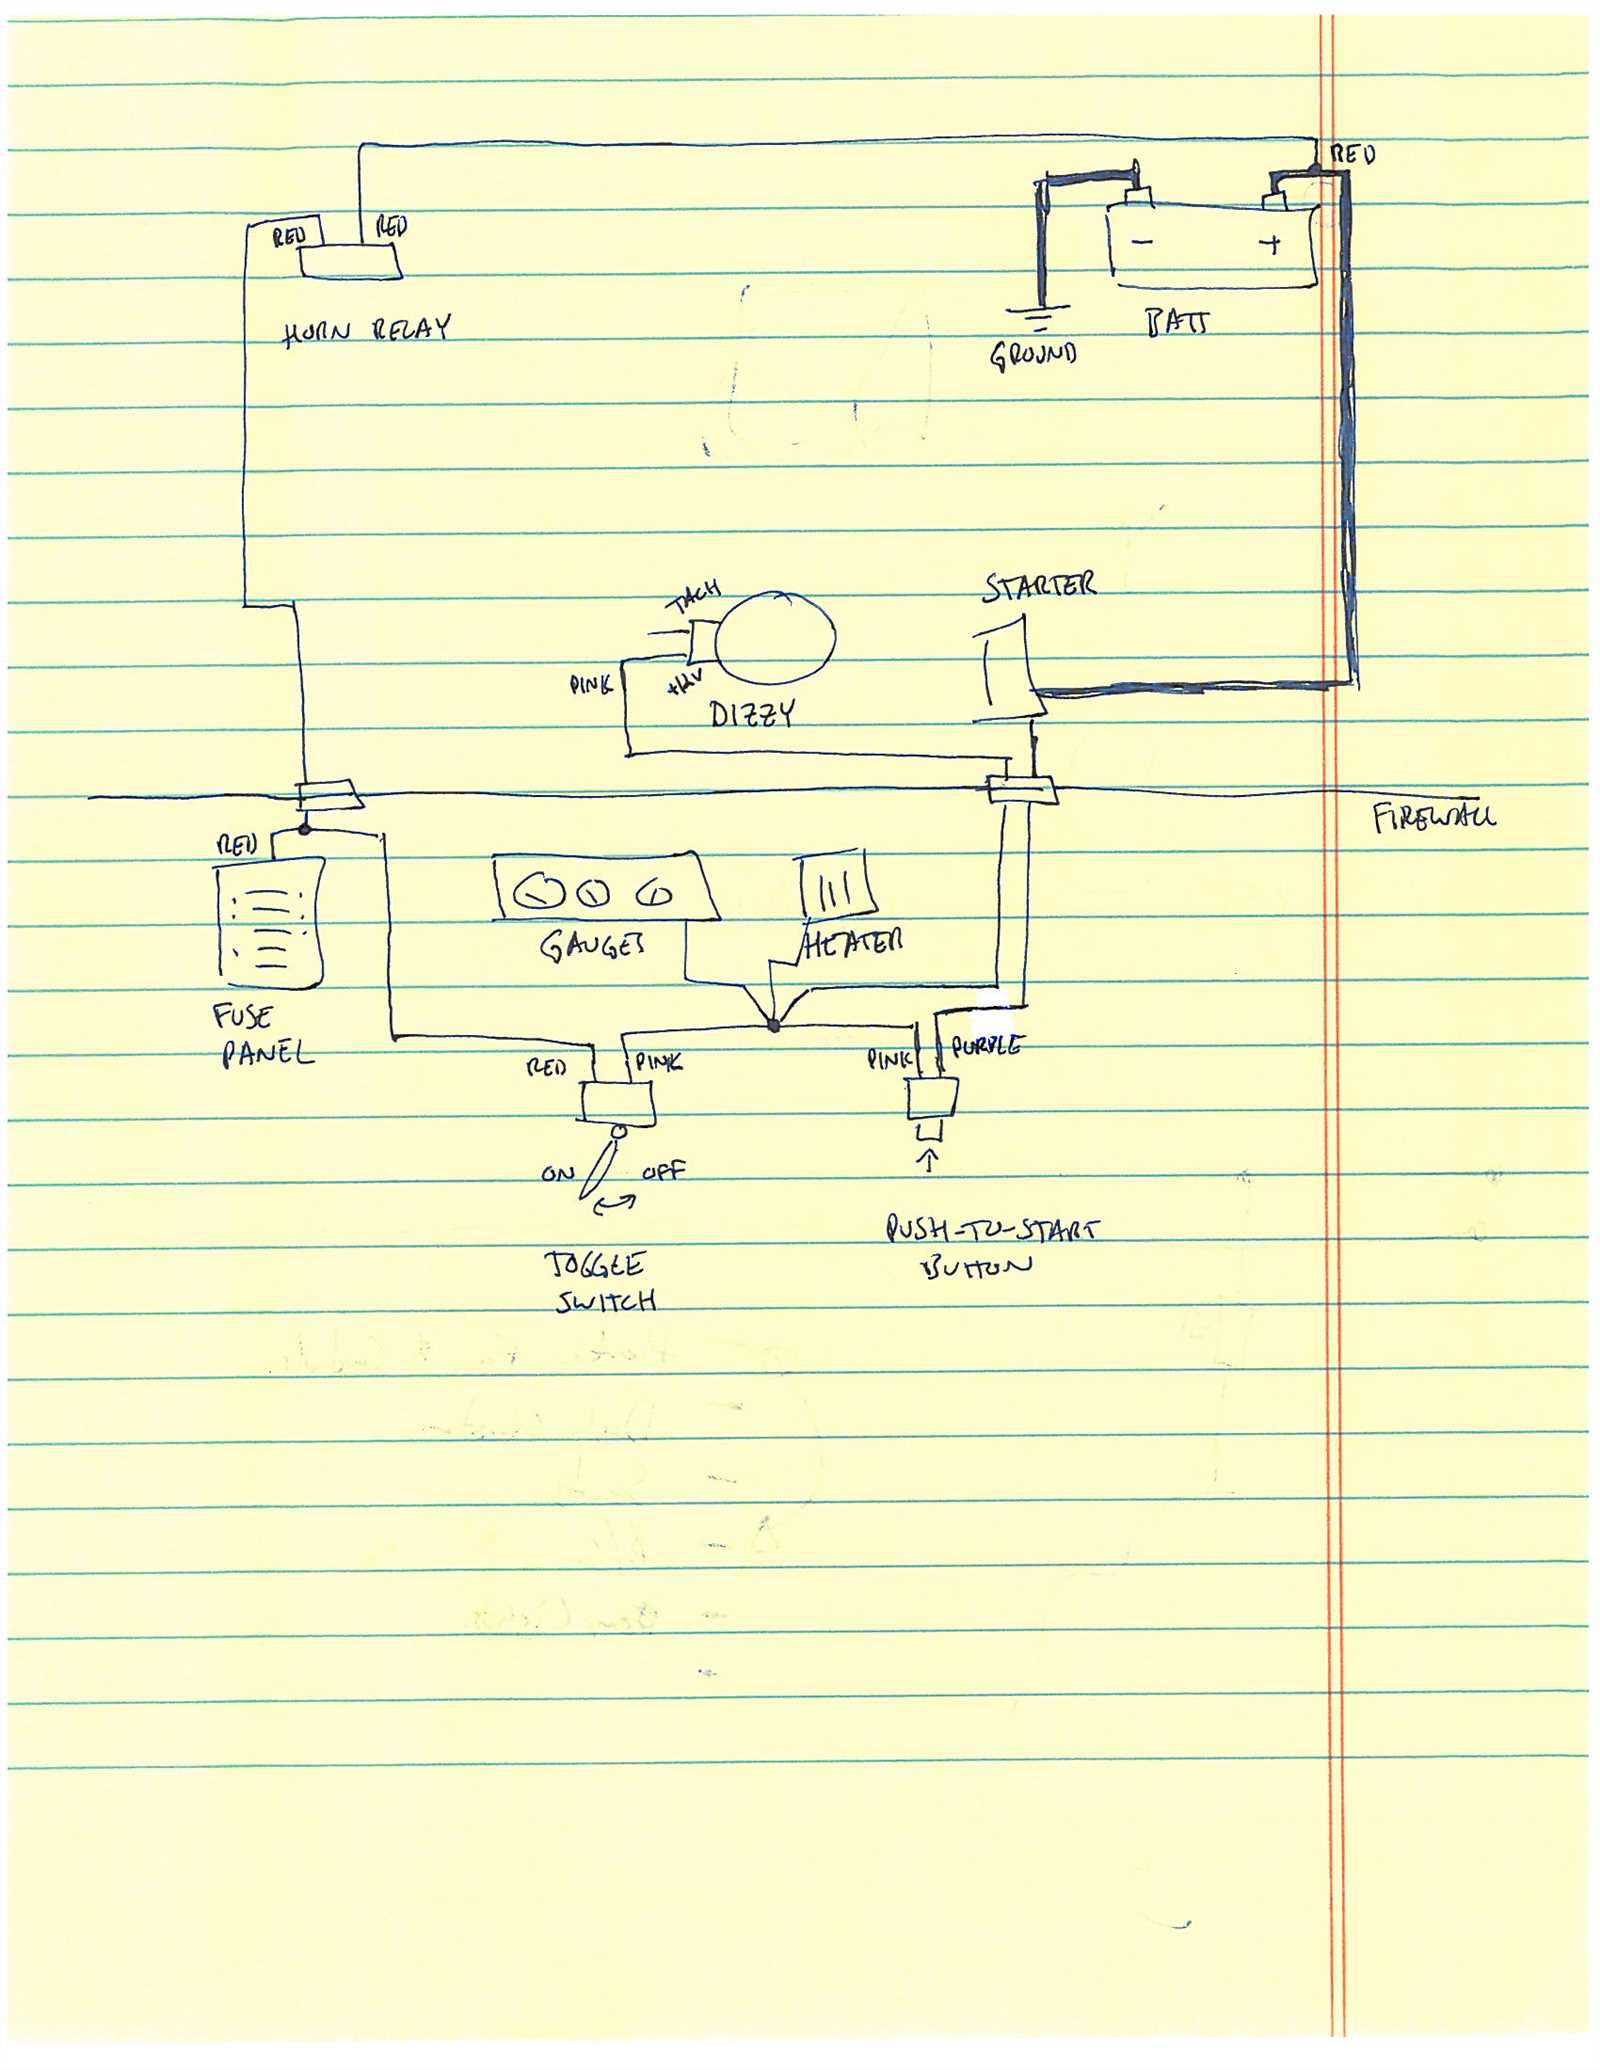 RED
RED
RED
HORN RELAY
- +
BATT
GROUND
TACH
STARTER
PINK
+12V
DIZZY
FIREWALL
RED
GAUGES
HEATER
FUSE
PANEL
RED
PINK
PINK
PURPLE
ON
OFF
PUSH-TO-START
BUTTON
TOGGLE
SWITCH